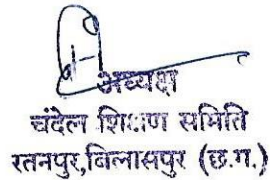 अध्यक्ष
चंदेल शिक्षण समिति
रतनपुर,बिलासपुर (छ.ग.)